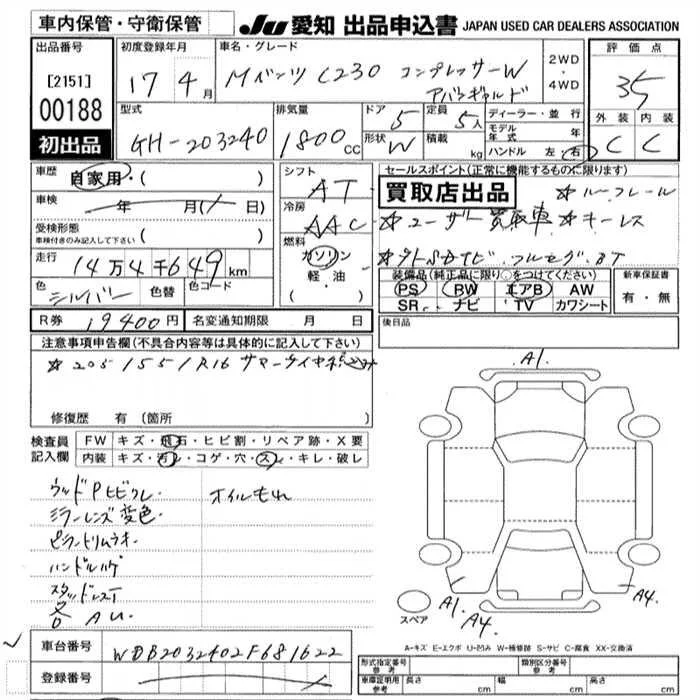 車内保管・守衛保管
JU 愛知 出品申込書 JAPAN USED CAR DEALERS ASSOCIATION
出品番号
[2151]
00188
初出品
初度登録年月
17年4月
車名・グレード
Mベンツ C230 コンプレッサーW
アバンギャルド
2WD
・
4WD
評価点
35
外装 内装
C C
型式
GH-203240
排気量
1800CC
ドア
5
形状
W
定員
5人
積載
kg
ディーラー・並行
モデル年式 年
ハンドル 左・右
車歴
自家用・( )
車検
年 月( 日)
受検形態
車検付きのみ記入して下さい ( )
走行
14万4千649km
色
シルバー
色替
色コード
シフト
AT
冷房
AAC
燃料
ガソリン
軽・油
( )
セールスポイント(正常に機能するものに限ります)
買取店出品
☆ルーフレール
☆ユーザー買取車 ☆キーレス
☆外SDナビ フルセグ BT
装備品(純正品に限り○をつけてください)
PS BW エアB AW
SR ナビ TV カワシート
新車保証書
有・無
R券 19400円
名変通知期限 月 日
後日品
注意事項申告欄(不具合内容等は具体的に記入して下さい)
☆205/55/R16 サマータイヤ積込み
修復歴 有(箇所
検査員記入欄
FW キズ・飛石・ヒビ割・リペア跡・X要
内装 キズ・汚レ・コゲ・穴・スレ・キレ・破レ
ウッドPヒビワレ オイルもれ
ミラーレンズ変色
ピラートリムウキ
ハンドルハゲ
スタッドレスT
各AU
A1
A1
A4
A4
スペア
A-キズ E-エクボ U-凹み W-補修跡 S-サビ C-腐食 XX-交換済
車台番号
WDB2032402F681622
登録番号
形式指定番号
参考
類別区分番号
参考
車庫証明用
参考
長さ cm 幅 cm 高さ cm